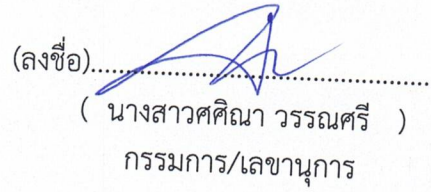 (ลงชื่อ)..................................................
( นางสาวศศิณา วรรณศรี )
กรรมการ/เลขานุการ